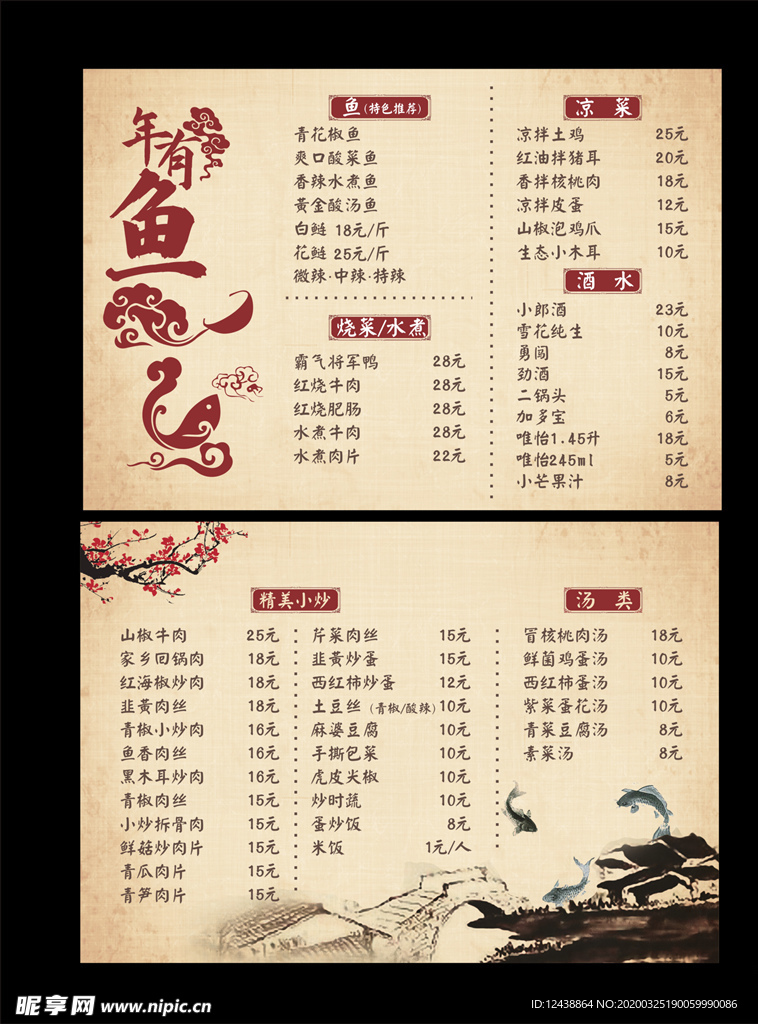 年有
鱼
鱼(特色推荐)
青花椒鱼
爽口酸菜鱼
香辣水煮鱼
黄金酸汤鱼
白鲢 18元/斤
花鲢 25元/斤
微辣·中辣·特辣
烧菜/水煮
霸气将军鸭 28元
红烧牛肉 28元
红烧肥肠 28元
水煮牛肉 28元
水煮肉片 22元
凉 菜
凉拌土鸡 25元
红油拌猪耳 20元
香拌核桃肉 18元
凉拌皮蛋 12元
山椒泡鸡爪 15元
生态小木耳 10元
酒 水
小郎酒 23元
雪花纯生 10元
勇闯 8元
劲酒 15元
二锅头 5元
加多宝 6元
唯怡1.45升 18元
唯怡245ml 5元
小芒果汁 8元
精美小炒
山椒牛肉 25元
家乡回锅肉 18元
红海椒炒肉 18元
韭黄肉丝 18元
青椒小炒肉 16元
鱼香肉丝 16元
黑木耳炒肉 16元
青椒肉丝 15元
小炒拆骨肉 15元
鲜菇炒肉片 15元
青瓜肉片 15元
青笋肉片 15元
芹菜肉丝 15元
韭黄炒蛋 15元
西红柿炒蛋 12元
土豆丝(青椒/酸辣) 10元
麻婆豆腐 10元
手撕包菜 10元
虎皮尖椒 10元
炒时蔬 10元
蛋炒饭 8元
米饭 1元/人
汤 类
冒核桃肉汤 18元
鲜菌鸡蛋汤 10元
西红柿蛋汤 10元
紫菜蛋花汤 10元
青菜豆腐汤 8元
素菜汤 8元
昵享网 www.nipic.cn
ID:12438864 NO:20200325190059990086